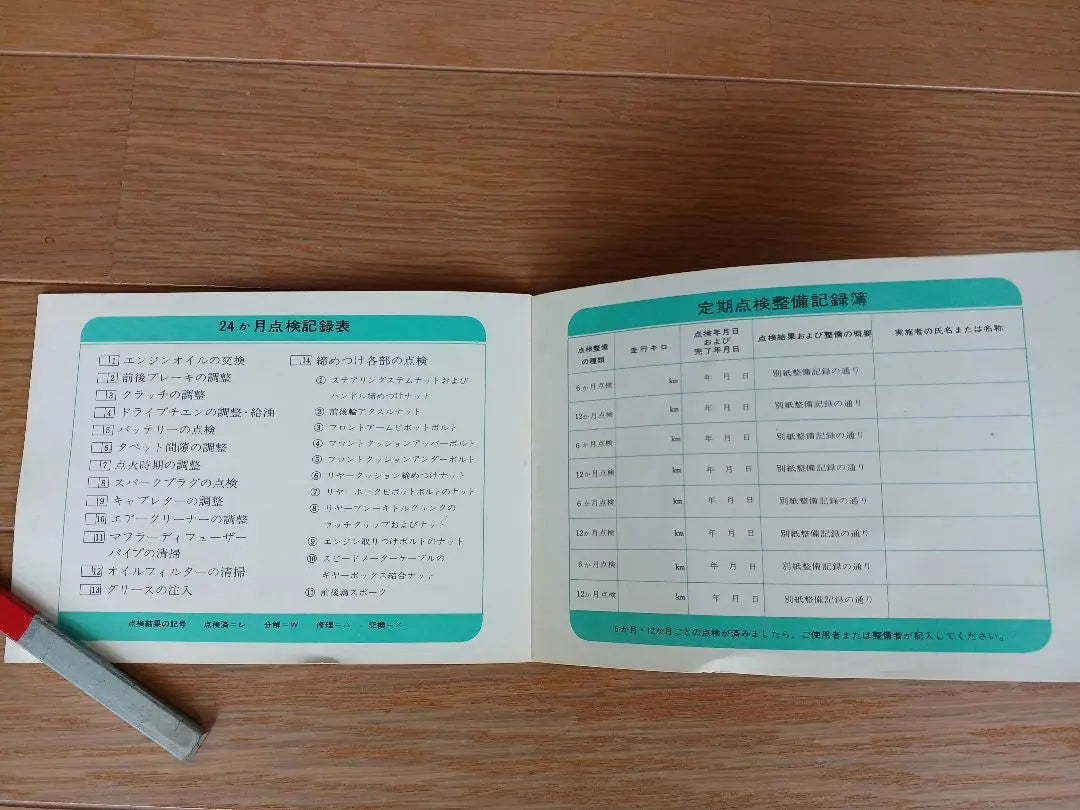 24か月点検記録表
1 エンジンオイルの交換
2 前後ブレーキの調整
3 クラッチの調整
4 ドライブチエンの調整・給油
5 バッテリーの点検
6 タペット間隙の調整
7 点火時期の調整
8 スパークプラグの点検
9 キャブレターの調整
10 エアークリーナーの調整
11 マフラーディフューザー
パイプの清掃
12 オイルフィルターの清掃
13 グリースの注入
14 締めつけ各部の点検
① ステアリングステムナットおよび
ハンドル締めつけナット
② 前後輪アクスルナット
③ フロントアームピボットボルト
④ フロントクッションアッパーボルト
⑤ フロントクッションアンダーボルト
⑥ リヤークッション締めつけナット
⑦ リヤーホークピボットボルトのナット
⑧ リヤーブレーキトルクリンクの
ラッチクリップおよびナット
⑨ エンジン取りつけボルトのナット
⑩ スピードメーターケーブルの
ギヤーボックス結合ナット
⑪ 前後輪スポーク
点検結果の記号 点検済=レ 分解=W 修理=△ 交換=×
定期点検整備記録簿
点検整備
の種類
走行キロ
点検年月日
および
完了年月日
点検結果および整備の概要
実施者の氏名または名称
6か月点検 km 年 月 日 別紙整備記録の通り
12か月点検 km 年 月 日 別紙整備記録の通り
6か月点検 km 年 月 日 別紙整備記録の通り
12か月点検 km 年 月 日 別紙整備記録の通り
6か月点検 km 年 月 日 別紙整備記録の通り
12か月点検 km 年 月 日 別紙整備記録の通り
6か月点検 km 年 月 日 別紙整備記録の通り
12か月点検 km 年 月 日 別紙整備記録の通り
6か月・12か月ごとの点検が済みましたら、ご使用者または整備者が記入してください。